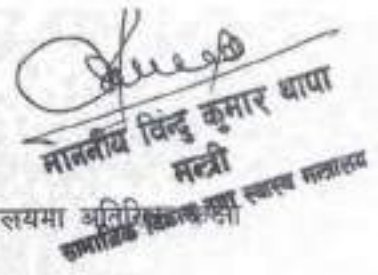 माननीय विन्दु कुमार थापा
मन्त्री
सामाजिक विकास तथा स्वास्थ्य मन्त्रालय
लयमा